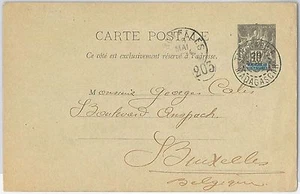 CARTE POSTALE
Ce côté est exclusivement réservé à l'adresse.
MAI
205
10
MADAGASCAR
Monsieur Georges
Boulevard Anspach
Bruxelles
Belgique